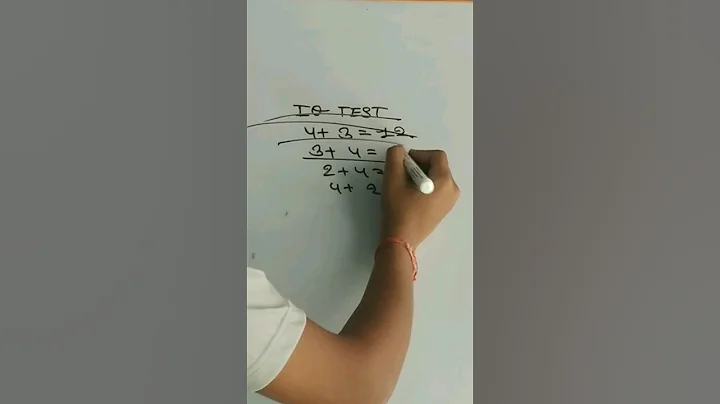 IQ TEST
4+ 3 = 12
3+ 4 =
2+4=
4+ 2